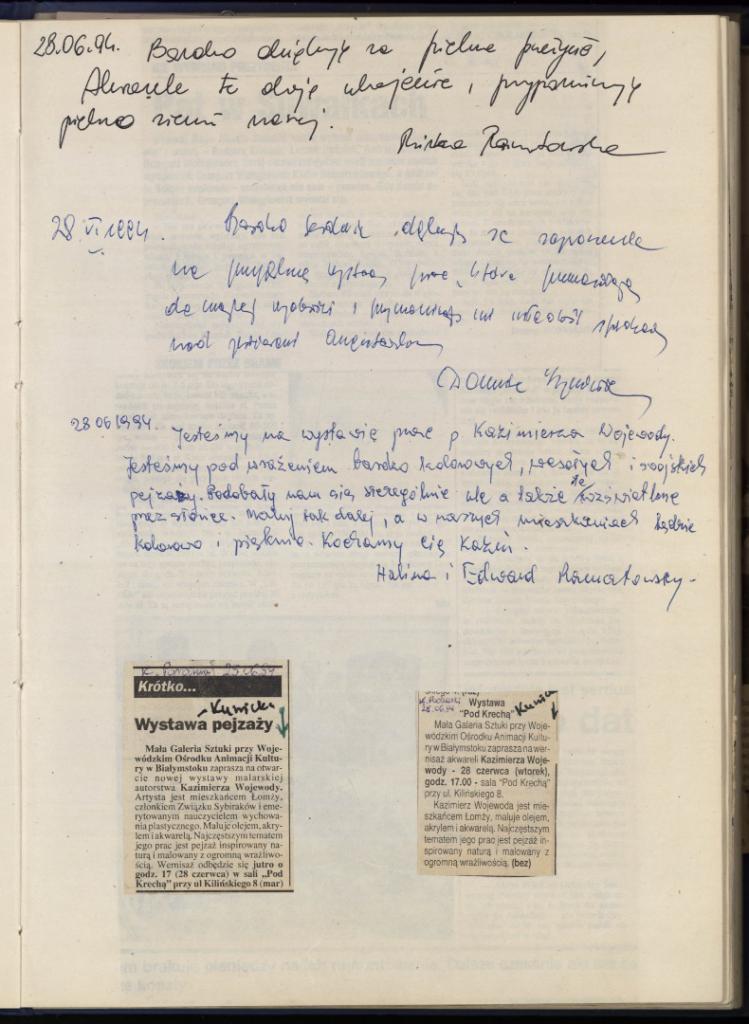 28.06.94. Bardzo dziękuję za piękne przeżycie,
Akwarele te dają ukojenie, i przypominają
piękno ziemi naszej.
28 VI 1994. Bardzo serdecznie dziękuję za zaproszenie
na wystawę prac, które
do mojej wyobraźni i przypominają mi młodość spędzoną
nad jeziorami Augustowskimi
Danuta
28 06 1994. Jesteśmy na wystawie prac p Kazimierza Wojewody.
Jesteśmy pod wrażeniem bardzo kolorowych, wesołych i swojskich
pejzaży. Podobały nam się szczególnie ule a także te rozświetlone
przez słońce. Maluj tak dalej, a w naszych mieszkaniach będzie
kolorowo i pięknie. Kochamy Cię Kaziu.
Halina i Edward Ramatowscy.
K. Poranny 25.06.94
Krótko...
Kunicki
Wystawa pejzaży
Mała Galeria Sztuki przy Woje-
wódzkim Ośrodku Animacji Kultu-
ry w Białymstoku zaprasza na otwar-
cie nowej wystawy malarskiej
autorstwa Kazimierza Wojewody.
Artysta jest mieszkańcem Łomży,
członkiem Związku Sybiraków i eme-
rytowanym nauczycielem wychowa-
nia plastycznego. Maluje olejem, akry-
lem i akwarelą. Najczęstszym tematem
jego prac jest pejzaż inspirowany na-
turą i malowany z ogromną wrażliwo-
ścią. Wernisaż odbędzie się jutro o
godz. 17 (28 czerwca) w sali „Pod
Krechą" przy ul Kilińskiego 8 (mar)
28.06.94 Wystawa
"Pod Krechą"
Mała Galeria Sztuki przy Woje-
wódzkim Ośrodku Animacji Kultu-
ry w Białymstoku zaprasza na wer-
nisaż akwareli Kazimierza Woje-
wody - 28 czerwca (wtorek),
godz. 17.00 - sala "Pod Krechą"
przy ul. Kilińskiego 8.
Kazimierz Wojewoda jest mie-
szkańcem Łomży, maluje olejem,
akrylem i akwarelą. Najczęstszym
tematem jego prac jest pejzaż in-
spirowany naturą i malowany z
ogromną wrażliwością. (bez)